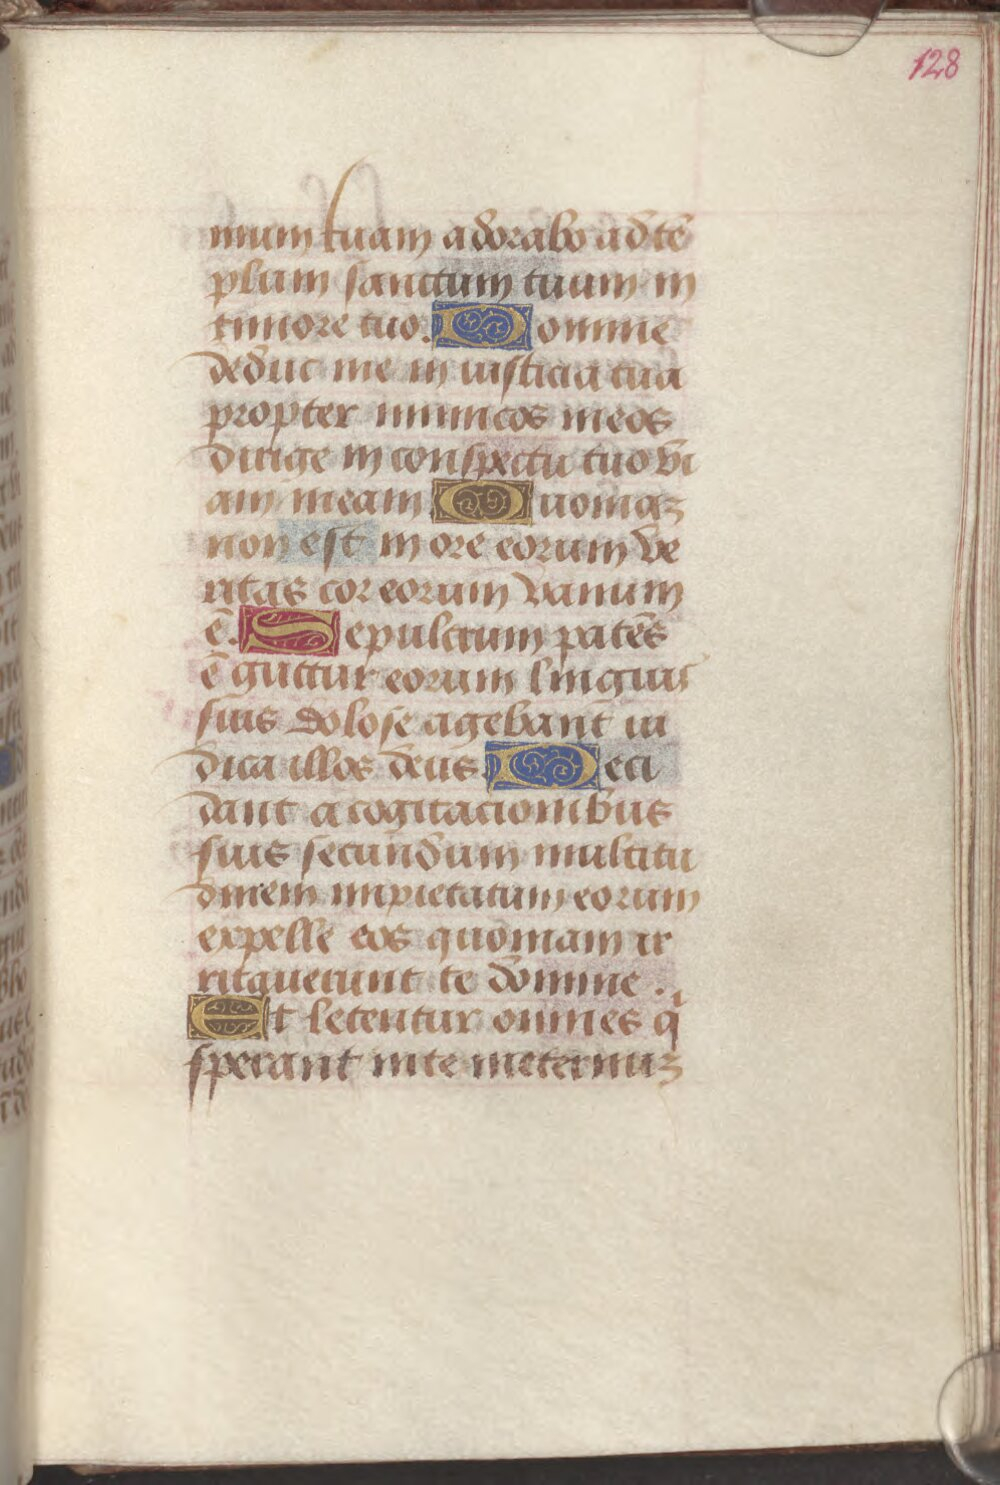 128
mum tuam adorabo ad tē
plum sanctum tuum in
timore tuo. Domine
deduc me in iusticia tua
propter inimicos meos
dirige in conspectu tuo vi
am meam Quoniaꝫ
non est in ore eorum ve
ritas cor eorum vanum
ē. Sepulcrum patēs
ē guttur eorum linguis
suis dolose agebant iu
dica illos deus Deci
dant a cogitacionibus
suis secundum multitu
dinem impietatum eorum
expelle eos quoniam ir
ritauerunt te domine.
Et letentur omnes q̇
sperant in te in eternuꝫ